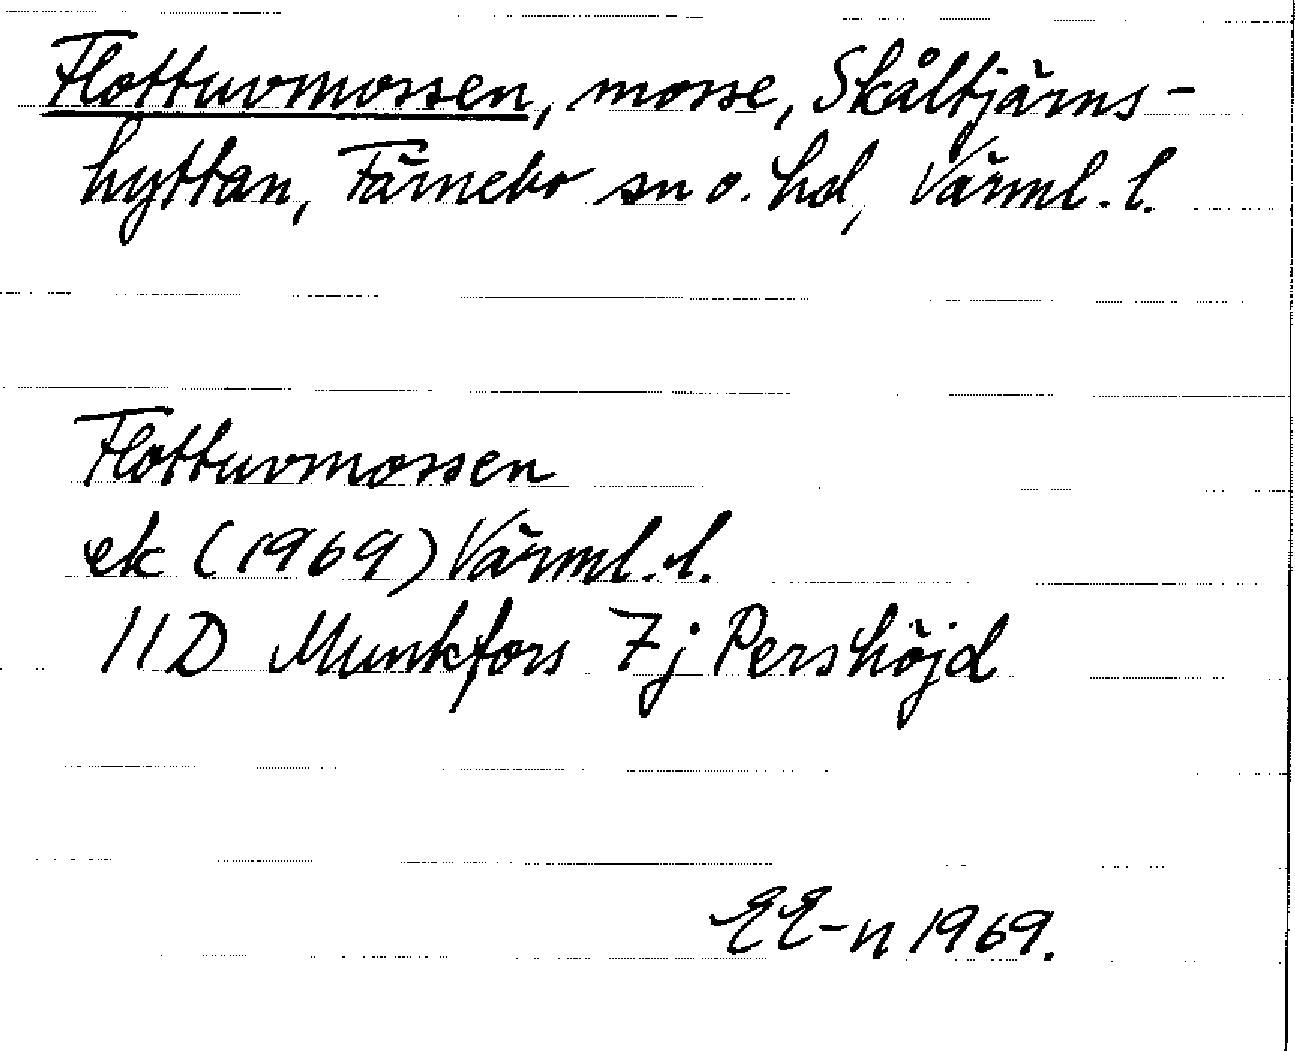 Flottuvmossen, mosse, Skåltjärns-
hyttan, Färnebo sn o. hd, Värml. l.
Flottuvmossen
ek (1969) Värml. l.
11D Munkfors 7j Pershöjd
EE-n 1969.